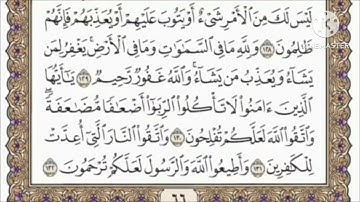 MADE WITH
VIVAVIDEO
لَيْسَ لَكَ مِنَ ٱلْأَمْرِ شَىْءٌ أَوْ يَتُوبَ عَلَيْهِمْ أَوْ يُعَذِّبَهُمْ فَإِنَّهُمْ
ظَٰلِمُونَ ١٢٨ وَلِلَّهِ مَا فِى ٱلسَّمَٰوَٰتِ وَمَا فِى ٱلْأَرْضِ ۚ يَغْفِرُ لِمَن
يَشَآءُ وَيُعَذِّبُ مَن يَشَآءُ ۚ وَٱللَّهُ غَفُورٌ رَّحِيمٌ ١٢٩ يَٰٓأَيُّهَا
ٱلَّذِينَ ءَامَنُوا۟ لَا تَأْكُلُوا۟ ٱلرِّبَوٰٓا۟ أَضْعَٰفًا مُّضَٰعَفَةً ۖ
وَٱتَّقُوا۟ ٱللَّهَ لَعَلَّكُمْ تُفْلِحُونَ ١٣٠ وَٱتَّقُوا۟ ٱلنَّارَ ٱلَّتِىٓ أُعِدَّتْ
لِلْكَٰفِرِينَ ١٣١ وَأَطِيعُوا۟ ٱللَّهَ وَٱلرَّسُولَ لَعَلَّكُمْ تُرْحَمُونَ ١٣٢
٦٦